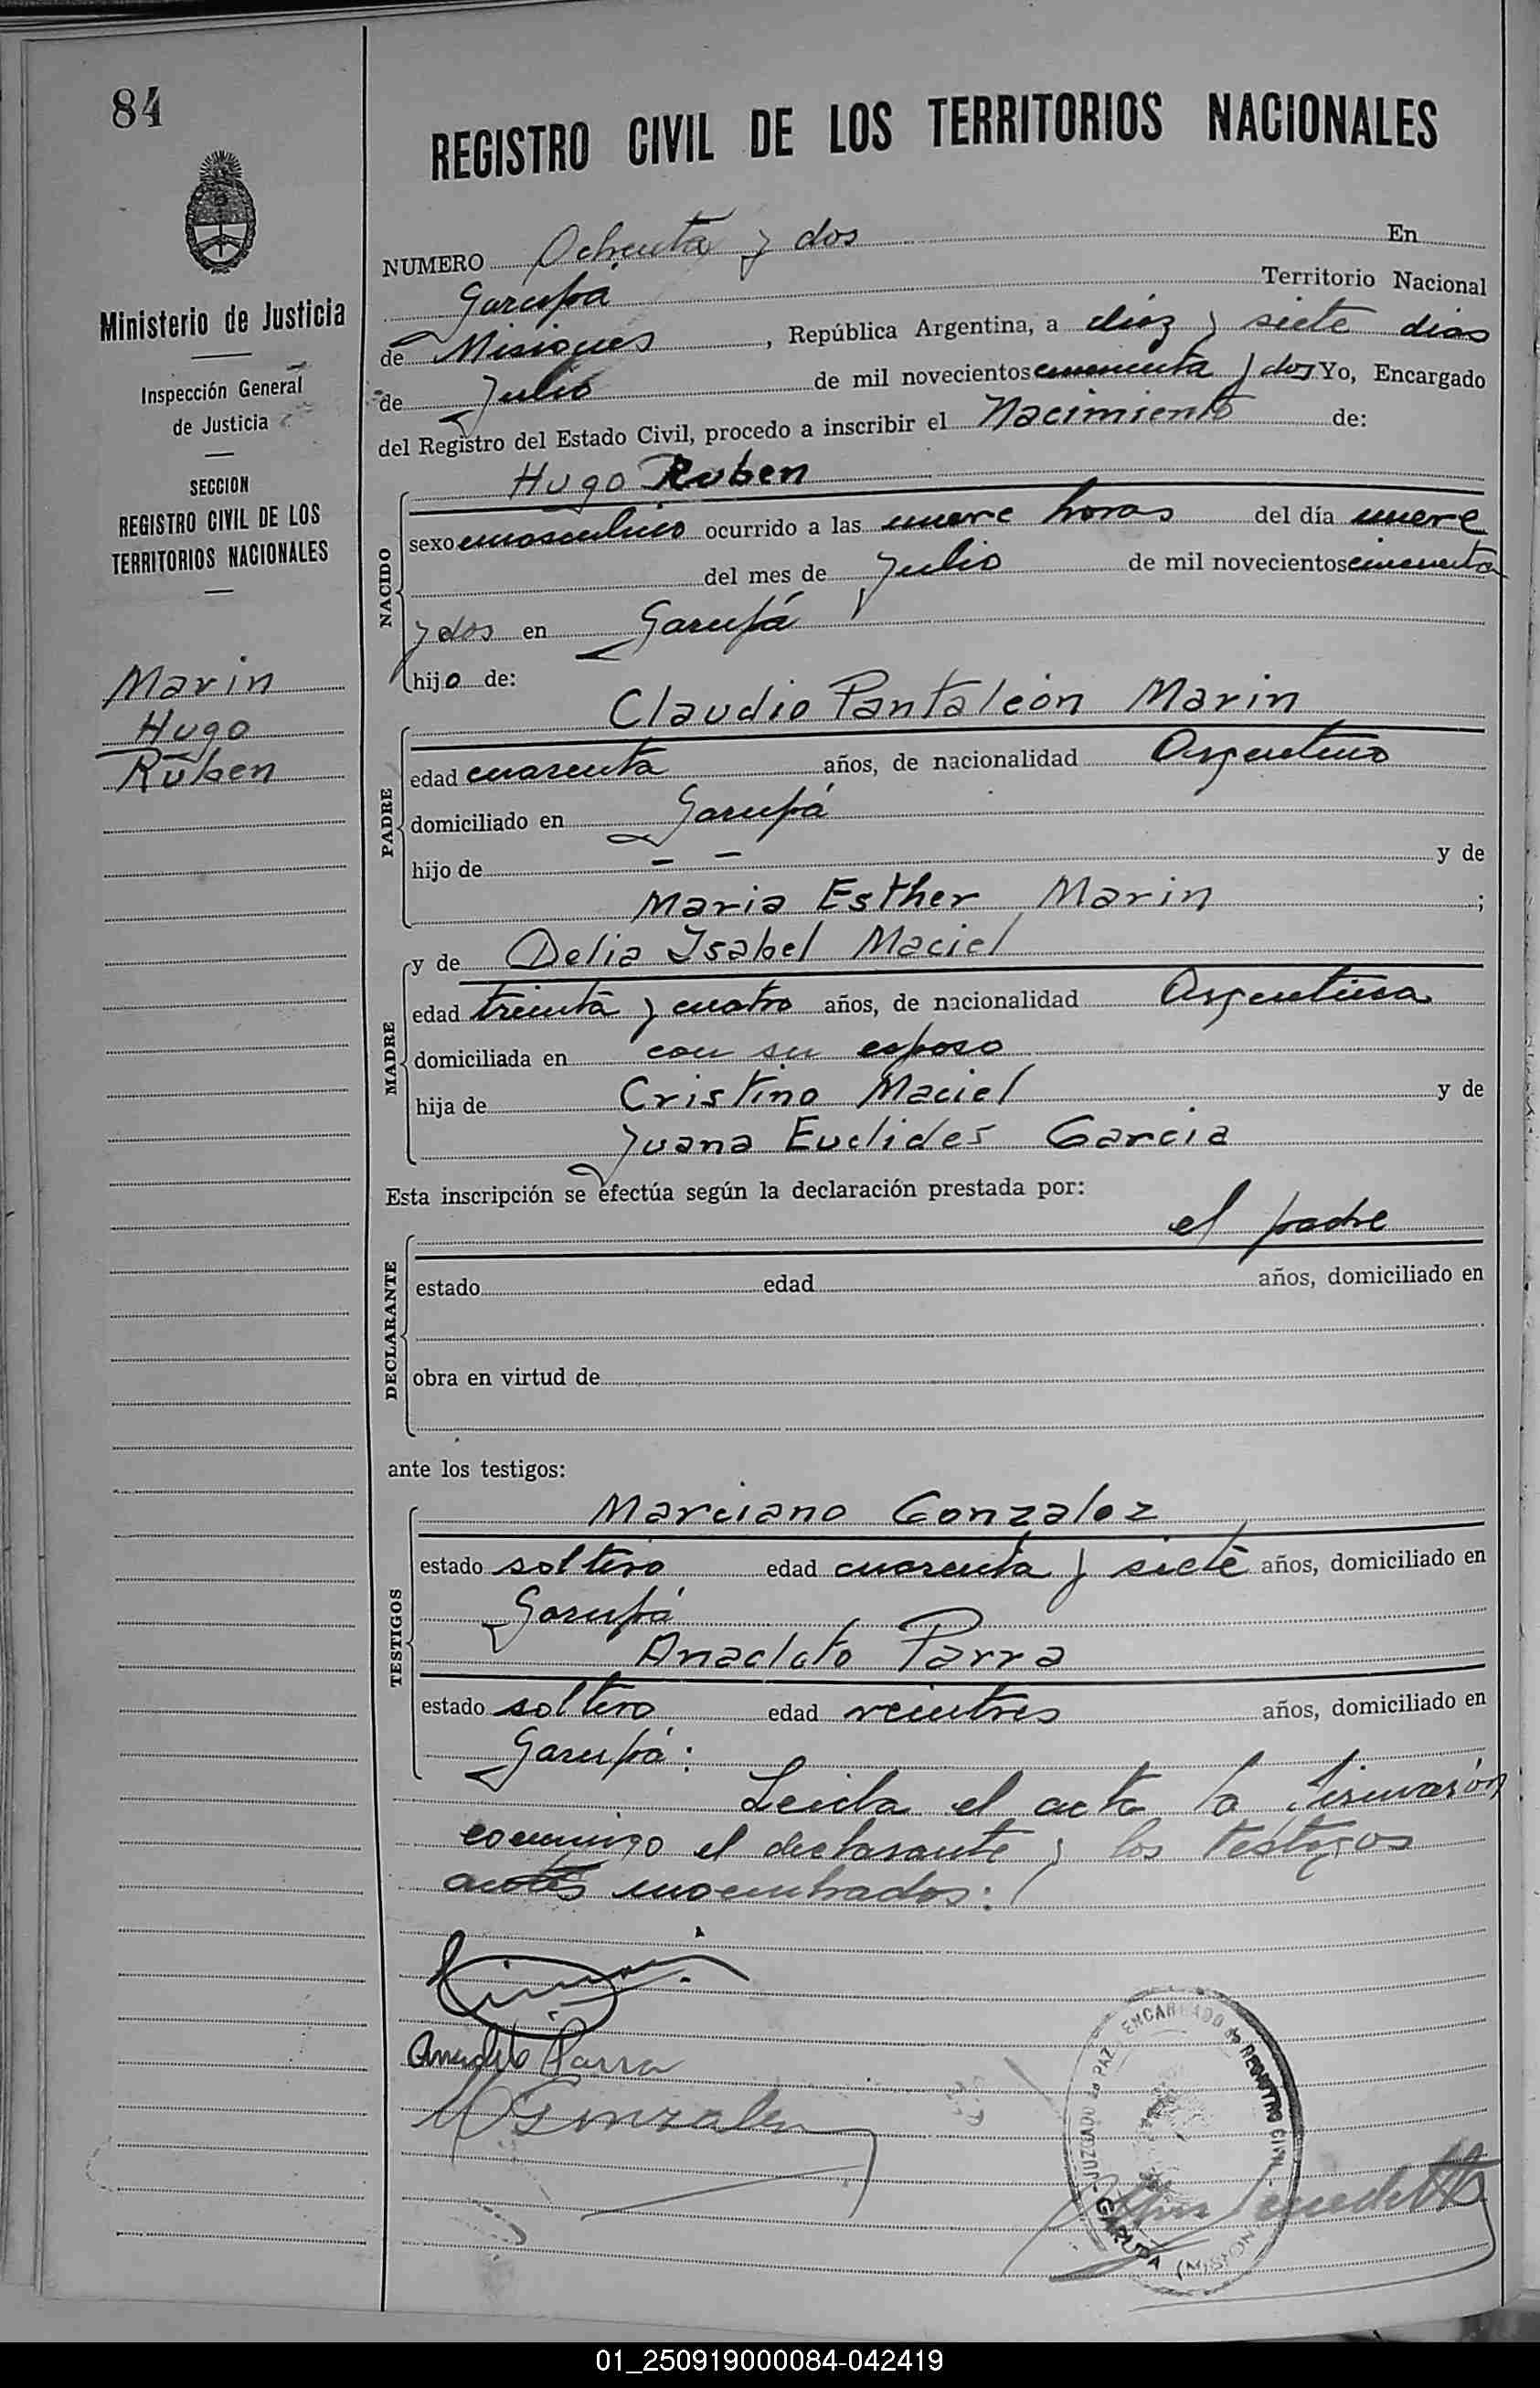 84
REGISTRO CIVIL DE LOS TERRITORIOS NACIONALES
Ministerio de Justicia
Inspección General
de Justicia
SECCION
REGISTRO CIVIL DE LOS
TERRITORIOS NACIONALES
Marin
Hugo
Rúben
NUMERO Ochenta y dos En
Garupá Territorio Nacional
de Misiones, República Argentina, a diez y siete dias
de Julio de mil novecientos cincuenta y dos Yo, Encargado
del Registro del Estado Civil, procedo a inscribir el Nacimiento de:
NACIDO
Hugo Ruben
sexo masculino ocurrido a las nueve horas del día nueve
del mes de Julio de mil novecientos cincuenta
y dos en Garupá
hijo de:
PADRE
Claudio Pantaleón Marin
edad cuarenta años, de nacionalidad Argentino
domiciliado en Garupá
hijo de — — y de
Maria Esther Marin ;
MADRE
y de Delia Isabel Maciel
edad treinta y cuatro años, de nacionalidad Argentina
domiciliada en con su esposo
hija de Cristino Maciel y de
Juana Euclides Garcia
Esta inscripción se efectúa según la declaración prestada por:
DECLARANTE
el padre
estado edad años, domiciliado en
obra en virtud de
ante los testigos:
TESTIGOS
Marciano Gonzalez
estado soltero edad cuarenta y siete años, domiciliado en
Garupá
Anacleto Parra
estado soltero edad veintres años, domiciliado en
Garupá:
Leida el acta la firmarón
conmigo el declarante y los testigos
antes nombrados:
Anacleto Parra
M Gonzalez
JUZGADO de PAZ ENCARGADO de REGISTRO CIVIL
GARUPA (MISIONES)
Benedetto
01_250919000084-042419